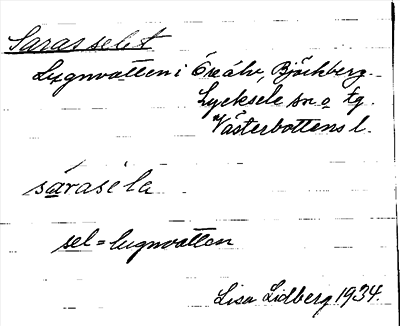 Sarasselet
Lugnvatten i Öreälv, Björkberg
Lycksele sn. o. tg.
Västerbottens l.
sárasé la
sel = lugnvatten
Lisa Lidberg 1934.